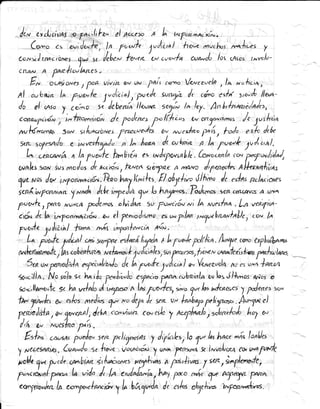 ser exclusivas o facilitar el acceso a la información.
Como es evidente, la fuente judicial tiene muchos matices y
consideraciones que se deben tener en cuenta cuando los casos involu-
cran a particulares.
En ocasiones, por vivir en un país como Venezuela, la noticia,
al cubrir la fuente judicial, puede surgir de cómo está siendo lleva-
do el caso y cómo se debería llevar según la ley. Arbitrariedades,
corrupción, intromisión de poderes políticos en organismos de justicia
autónomos son situaciones frecuentes en nuestro país, todo esto debe
ser sopesado e investigado a la hora de cubrir a la fuente judicial.
La cercanía a la fuente también es indispensable. Conocerla con profundidad,
cuáles son sus modos de acción, tener siempre a mano diferentes alternativas
que nos den información. Pero hay límites. El objetivo último de estas relaciones
será informar y nada debe impedir que lo hagamos. Podemos ser cercanos a una
fuente, pero nunca podemos olvidar su función ni la nuestra. La verifica-
ción de la información en el periodismo es un pilar inquebrantable, con la
fuente judicial toma más importancia aún.
La fuente judicial casi siempre estará ligada a la fuente política. Aunque como explicábamos
anteriormente, las coberturas netamente judiciales, sin procesos, tienen características particulares.
Ser un periodista especializado de la fuente judicial en Venezuela no es una tarea
sencilla. No solo se ha ido perdiendo espacio para cubrirla en los últimos años o
sencillamente se ha vetado el ingreso a las fuentes, sino que los intereses y poderes son
tan grandes en estos medios que no deja de ser un trabajo peligroso. Aunque el
periodista, en general, deba convivir con ello y aceptarlo, sobretodo hoy en
día en nuestro país.
Estas causas pueden ser peligrosas y difíciles, lo que las hace más loables
y necesarias. Cuando se tiene vocación y una persona se involucra con una fuente
noble que puede cambiar situaciones negativas a positivas y ser, simplemente,
funcional para la vida de la ciudadanía, hay poco más que agregar para
comprender la comportación y la búsqueda de estos objetivos informativos.